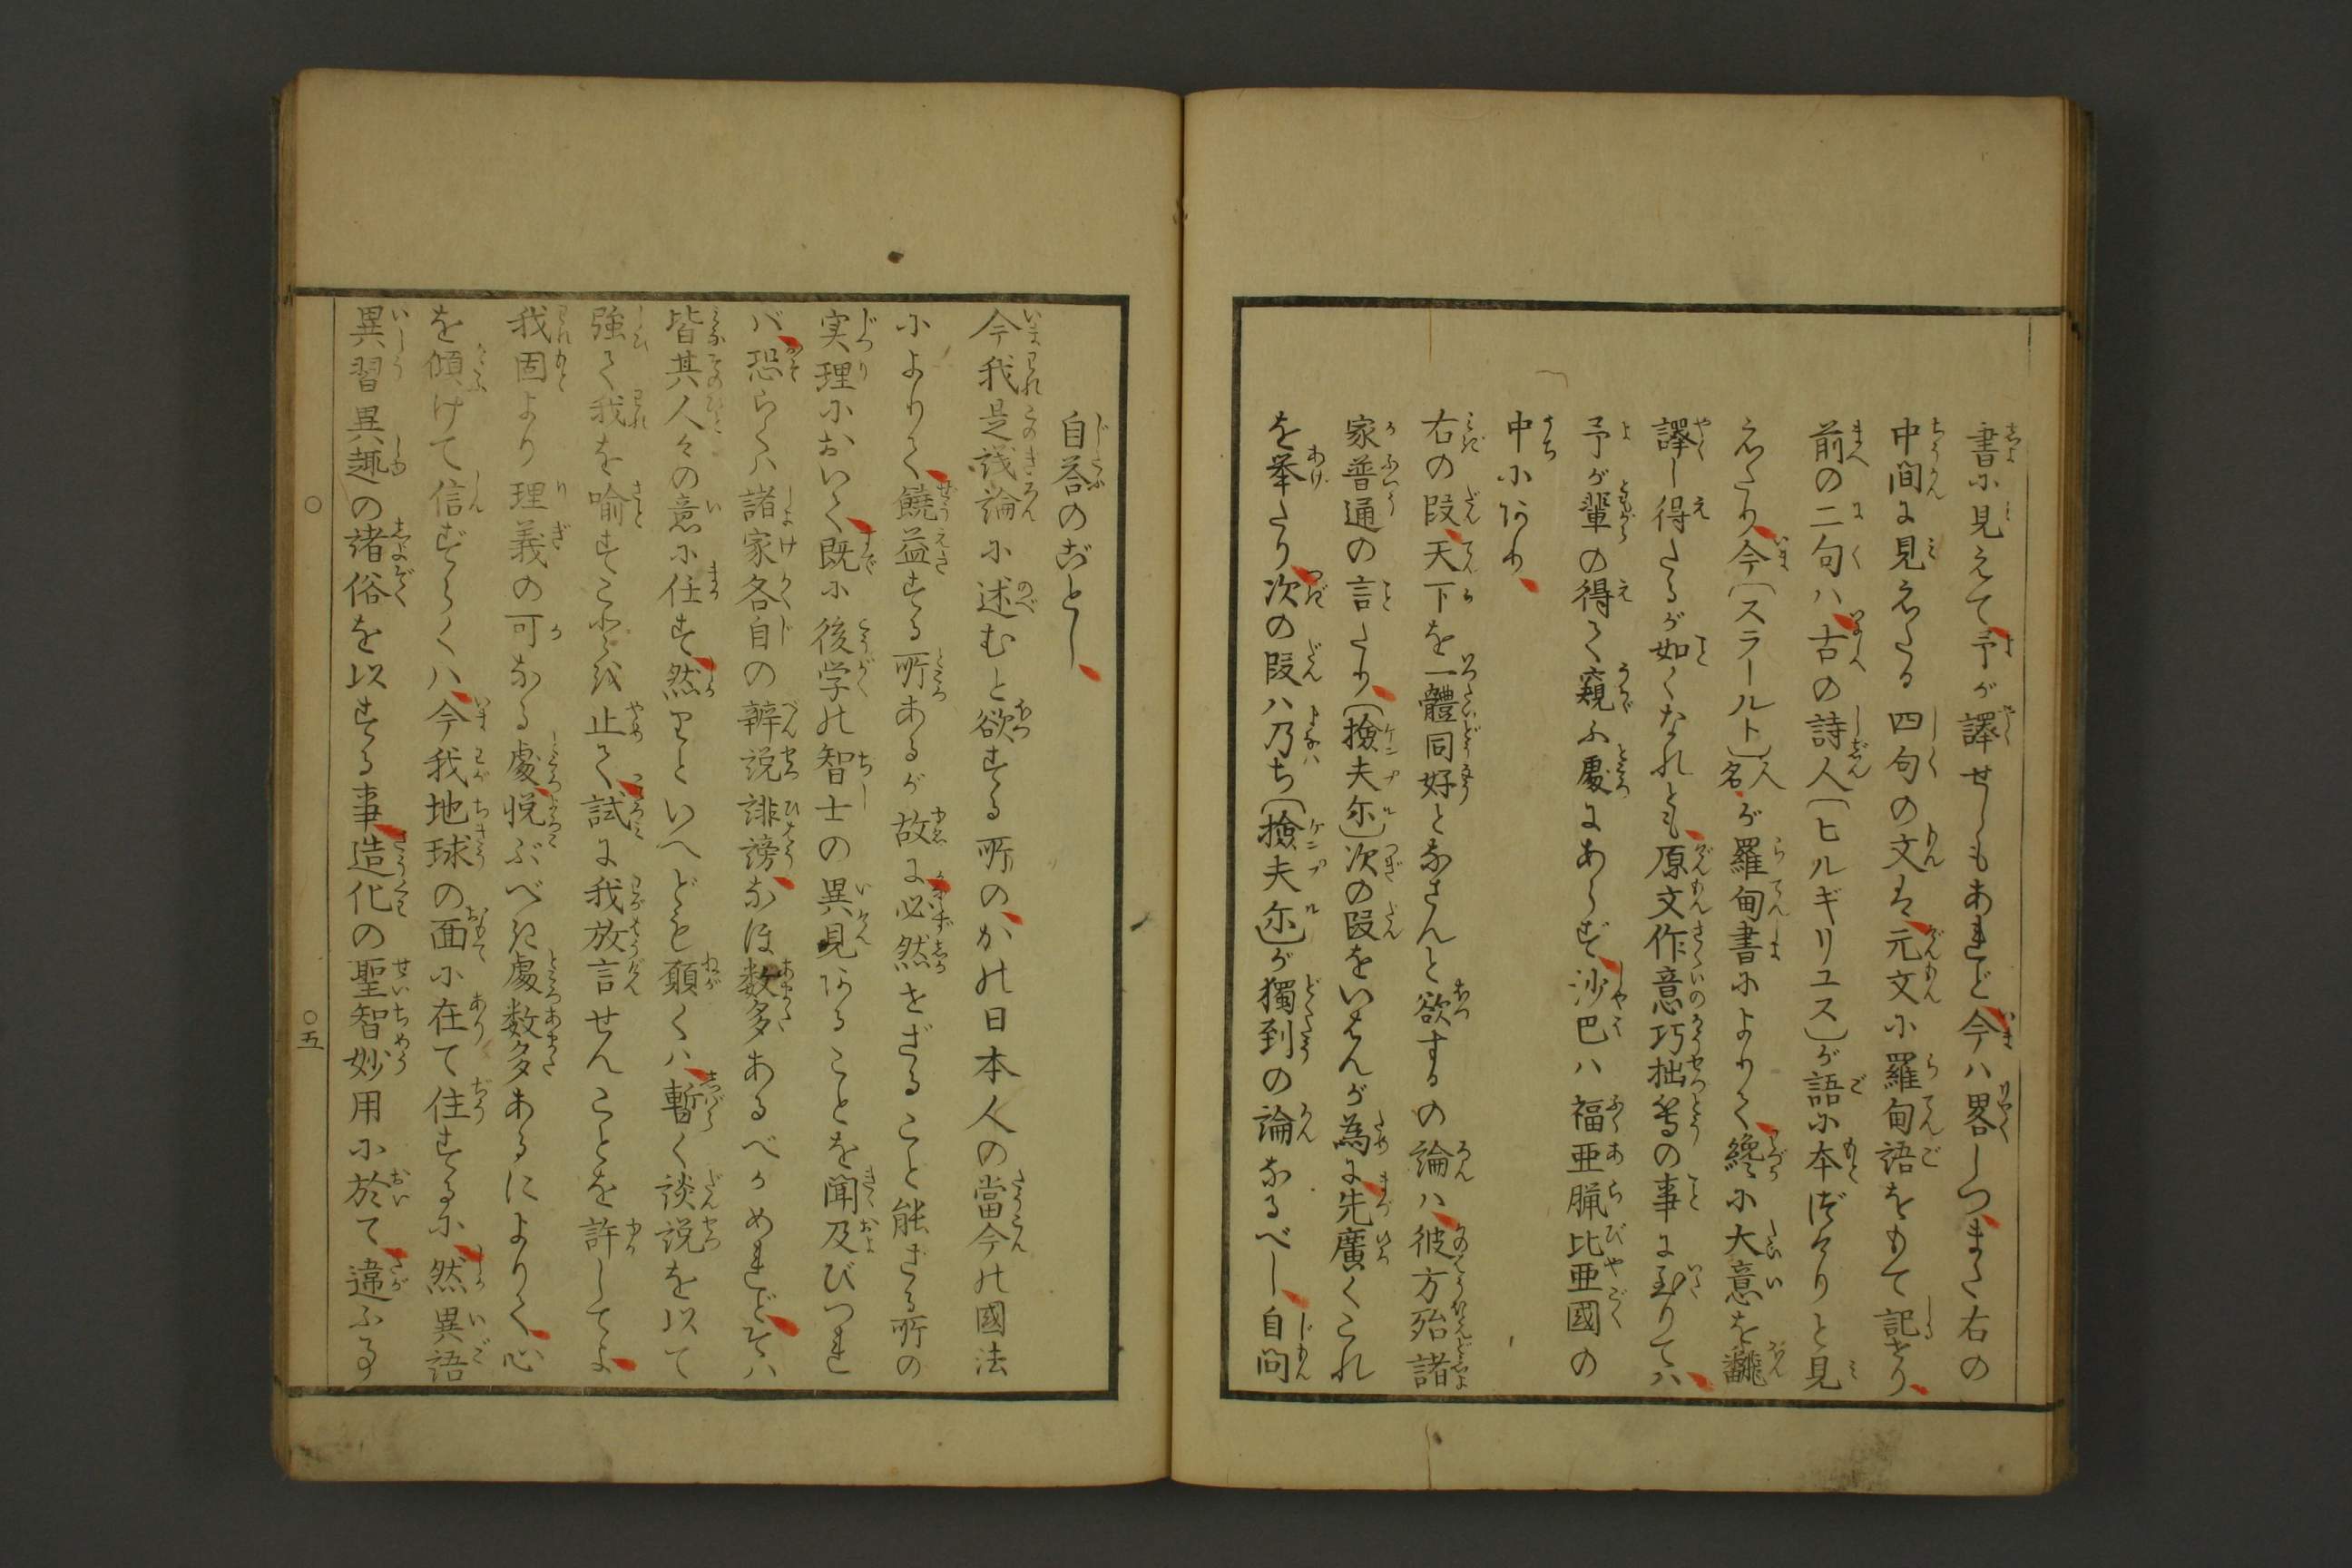 書に見えて予が譯せしもあれど今ハ畧しつまた右の
中間に見えたる四句の文は元文に羅甸語をもて記せり
前の二句ハ古の詩人〔ヒルギリユス〕が語に本づけりと見
えたり今〔スラールト〕人名が羅甸書によりて纔に大意を飜
譯し得たるが如くなれとも原文作意巧拙等の事に至りてハ
予が輩の得て窺ふ處にあらず沙巴ハ福亜臘比亜國の
中にあり
右の段天下を一體同好となさんと欲するの論ハ彼方殆諸
家普通の言たり〔撿夫尓〕次の段をいはんが為に先廣くこれ
を挙たり次の段ハ乃ち〔撿夫尓〕が獨到の論なるべし自問
自荅のごとし
今我是議論に述むと欲する所のかの日本人の當今の國法
によりて饒益する所あるが故に必然せざること能ざる所の
実理において既に後学の智士の異見あることを聞及びつれ
バ恐らくハ諸家各自の辨説誹謗なほ数多あるべかめれどそハ
皆其人々の意に任す然りといへども願くハ暫く談説を以て
強て我を喩すことを止て試に我放言せんことを許してよ
我固より理義の可なる處悦ぶべき處数多あるによりて心
を傾けて信ずらくハ今我地球の面に在て住するに然異語
異習異趣の諸俗を以する事造化の聖智妙用に於て違ふる
五